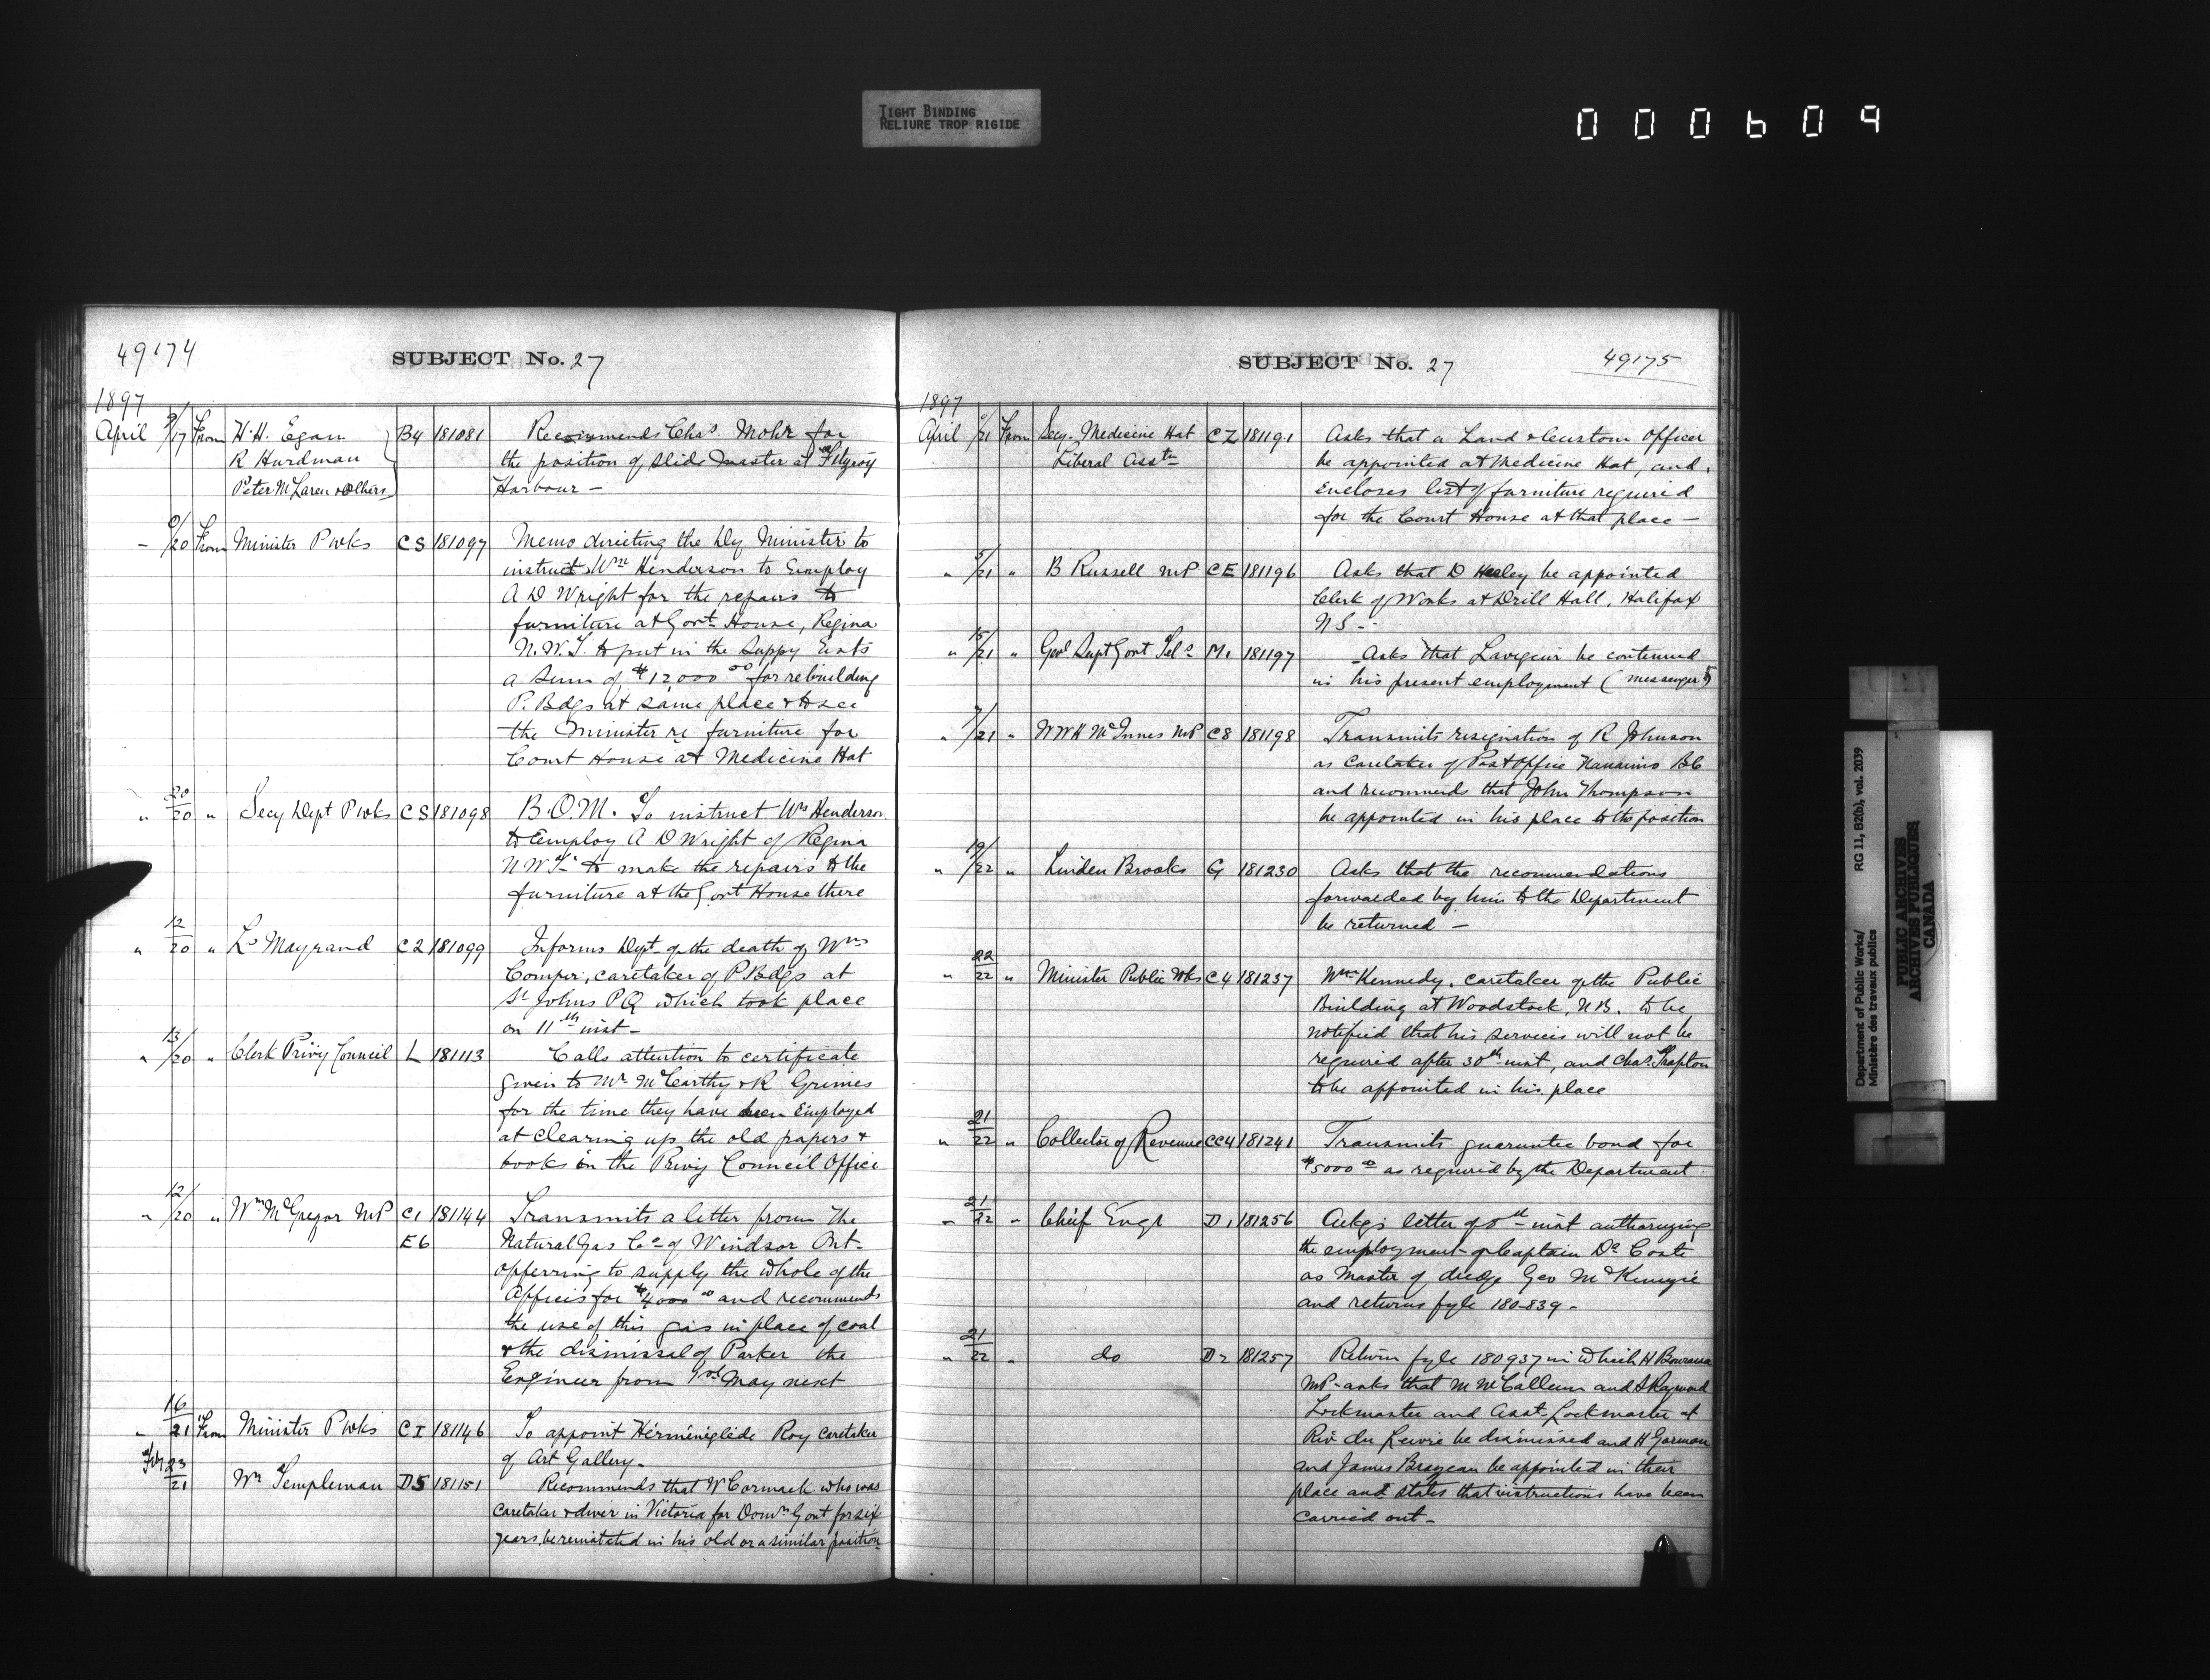 TIGHT BINDING
RELIURE TROP RIGIDE
000609
49174
SUBJECT No. 27
1897
April 9/17 From H.H. Egan B4 181081 Recommends Chas. Mohr for
R Hurdman the position of slide master at Fitzroy
Peter McLaren & Others Harbour —
" 9/20 From Minister P Wks CS 181097 Memo directing the Dy Minister to
instruct Wm Henderson to Employ
A D Wright for the repairs to
furniture at Govt House, Regina
N.W.T. to put in the Suppy Ests
a sum of $12000 00 for rebuilding
P. Bdgs at same place & to see
the Minister re furniture for
Court House at Medicine Hat
" 20/20 " Secy Dept P Wks CS 181098 B.O.M. To instruct Wm Henderson
to Employ A D Wright of Regina
N W T to make the repairs to the
furniture at the Govt House there
" 12/20 " Ls Mayrand C2 181099 Informs Dept of the death of Wm
Comper, caretaker of P. Bdgs at
St Johns PQ which took place
on 11th inst —
" 13/20 " Clerk Privy Council L 181113 Calls attention to certificate
given to Mr McCarthy & R Grimes
for the time they have been Employed
at clearing up the old papers &
books in the Privy Council Office
" 12/20 " Wm McGregor MP C1 181144 Transmits a letter from The
E6 Natural Gas Co of Windsor Ont.
offerring to supply the whole of the
Offices for $4000 00 and recommends
the use of this gas in place of coal
& the dismissal of Parker the
Engineer from 1st May next
" 16/21 From Minister P Wks CI 181146 To appoint Hérménigléde Roy caretaker
of Art Gallery —
23/21 Wm Templeman D5 181151 Recommends that W Cormack who was
caretaker & diver in Victoria for Domn Govt for six
years, be reinstated in his old or a similar position
SUBJECT No. 27
49175
1897
April /21 From Secy. Medicine Hat CZ 181191 Asks that a Land & Custom Officer
Liberal Asstn be appointed at Medicine Hat, and
Encloses list of furniture required
for the Court House at that place —
" 5/21 " B Russell MP CE 181196 Asks that D Healey be appointed
Clerk of Works at Drill Hall, Halifax
N S —
" 15/21 " Genl Supt Govt Tels M. 181197 Asks that Lavigeur be continued
in his present employment (messenger)
" 7/21 " W W H McInnes MP C8 181198 Transmits resignation of R Johnson
as Caretaker of Post Office Nanaimo BC
and recommends that John Thompson
be appointed in his place to the position
" 19/22 " Linden Brooks G 181230 Asks that the recommendations
forwarded by him to the Department
be returned —
" 22/22 " Minister Public Wks C4 181237 Wm Kennedy, caretaker of the Public
Building at Woodstock, N.B. to be
notified that his services will not be
required after 30th inst, and Chas.
to be appointed in his place
" 21/22 " Collector of Revenue CC4 181241 Transmits guarantee bond for
$5000 00 as required by the Department
" 21/22 " Chief Engr D1 181256 Ackgs letter of 8th inst authorizing
the employment of Captain De Coste
as Master of dredge Geo McKenzie
and returns fyle 180839 —
" 21/22 " do D2 181257 Return fyle 180937 in which H Bourassa
MP asks that M McCallum and S Raymond
Lockmaster and Asst Lockmaster at
Riv du Lievre be dismissed and H Gorman
and James Brazeau be appointed in their
place and states that instructions have been
carried out —
Department of Public Works/
Ministère des travaux publics
RG 11, B2(b), vol. 2039
PUBLIC ARCHIVES
ARCHIVES PUBLIQUES
CANADA